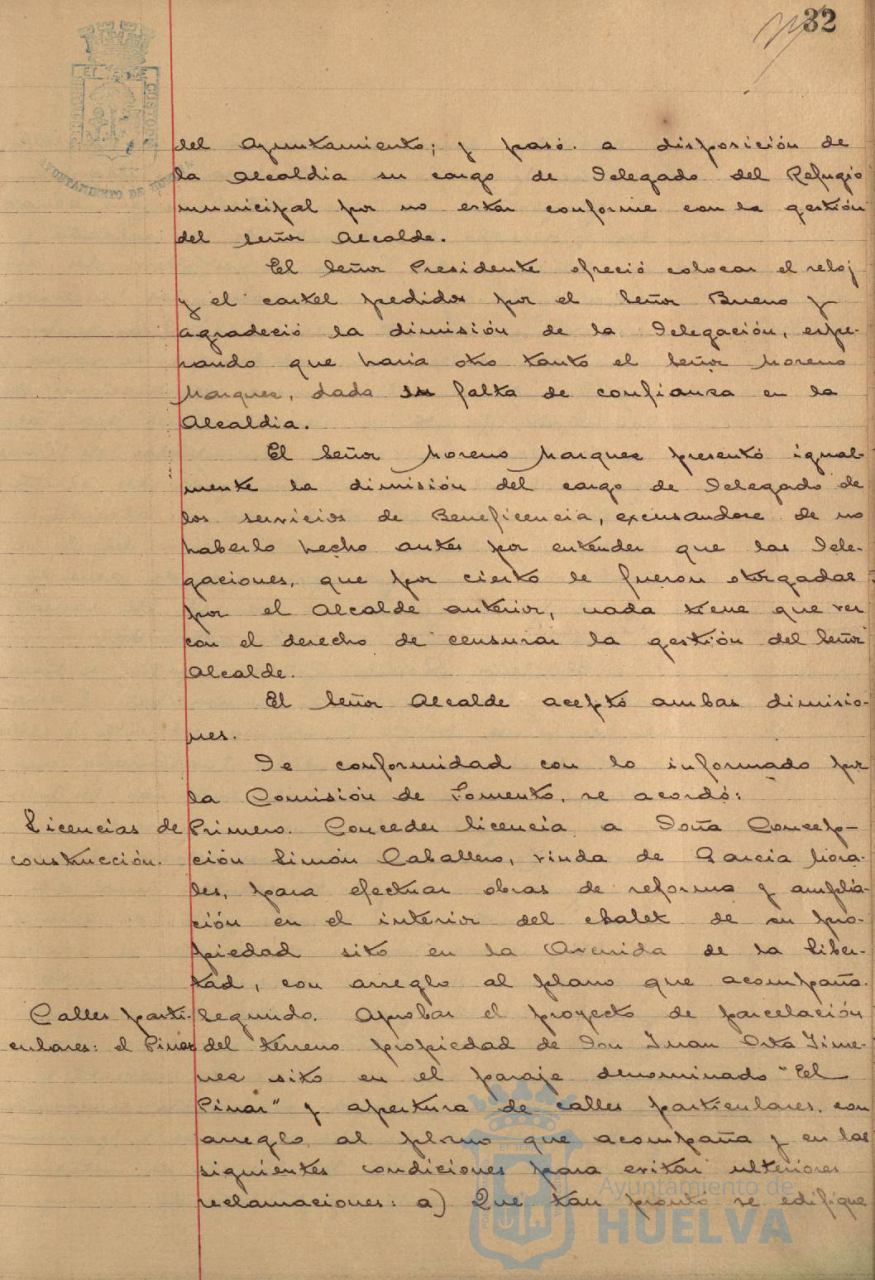 32
del Ayuntamiento; y pasó a disposición de
la Alcaldia su cargo de Delegado del Refugio
municipal por no estar conforme con la gestión
del Señor Alcalde.
El Señor Presidente ofreció colocar el reloj
y el cartel pedidos por el Señor Bueno y
agradeció la dimisión de la Delegación, espe-
rando que haria otro tanto el Señor Moreno
Marquez, dada su falta de confianza en la
Alcaldia.
El Señor Moreno Marquez presentó igual-
mente la dimisión del cargo de Delegado de
los servicios de Beneficencia, excusandose de no
haberlo hecho antes por entender que las Dele-
gaciones, que por cierto le fueron otorgadas
por el Alcalde anterior, nada tiene que ver
con el derecho de censurar la gestión del Señor
Alcalde.
El Señor Alcalde aceptó ambas dimisio-
nes.
De conformidad con lo informado por
la Comisión de Fomento, se acordó:
Licencias de
construcción.
Primero. Conceder licencia a Doña Concep-
ción Simón Caballero, viuda de Garcia Mora-
les, para efectuar obras de reforma y amplia-
ción en el interior del chalet de su pro-
piedad sito en la Avenida de la Liber-
tad, con arreglo al plano que acompaña.
Calles parti-
culares: el Pinar
Segundo. Aprobar el proyecto de parcelación
del terreno propiedad de Don Juan Orta Jime-
nez sito en el paraje denominado "El
Pinar" y apertura de calles particulares, con
arreglo al plano que acompaña y en las
siguientes condiciones para evitar ulteriores
reclamaciones: a) Que tan pronto se edifique
Ayuntamiento de
HUELVA